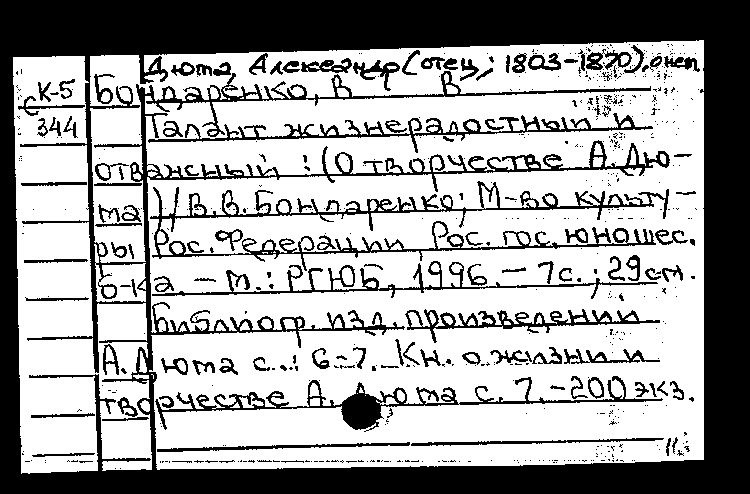 Дюма, Александр (отец; 1803-1870), о нем.
сК-5 Бондаренко, В В
344 Талант жизнерадостный и
отважный : (О творчестве А. Дю-
ма)/ В.В.Бондаренко; М-во культу-
ры Рос. Федерации Рос. гос. юношес.
б-ка. - М.: РГЮБ, 1996. - 7с.; 29см.
Библиогр. изд. произведений
А. Дюма с.: 6-7. Кн. о жизни и
творчестве А. Дюма с. 7. - 200 экз.